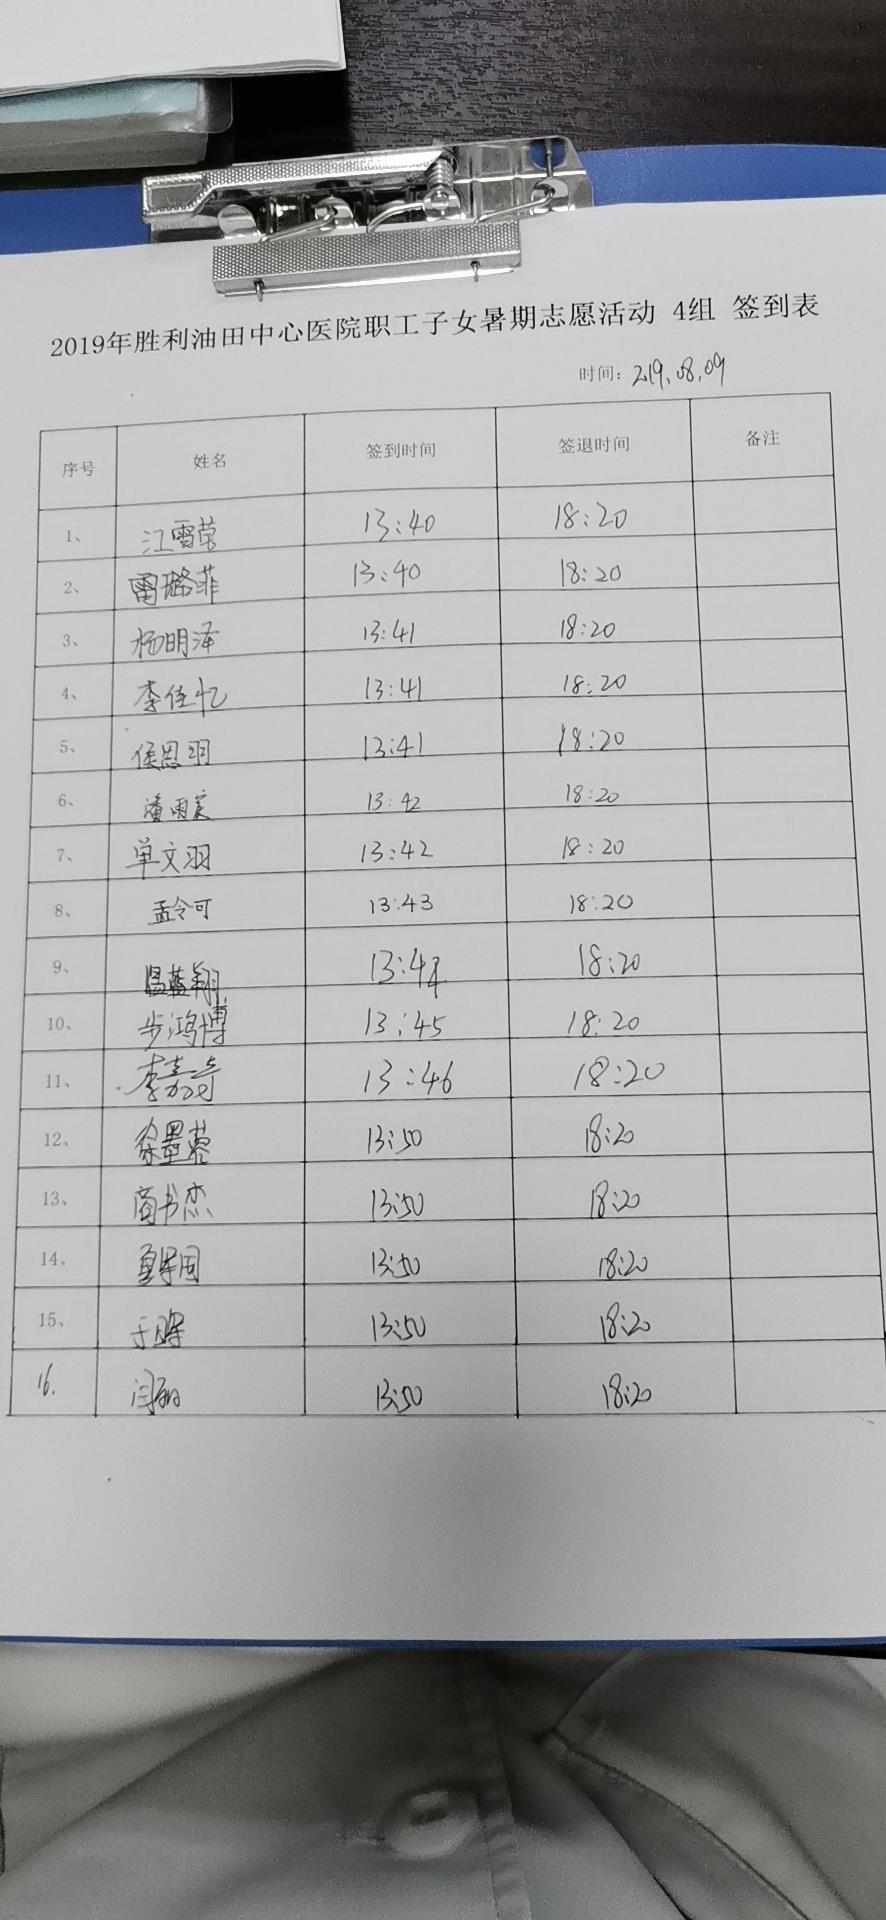 2019年胜利油田中心医院职工子女暑期志愿活动 4组 签到表
时间：2019.08.09
序号 姓名 签到时间 签退时间 备注
1、 江雪莹 13:40 18:20
2、 雷璐菲 13:40 18:20
3、 杨明泽 13:41 18:20
4、 李佳忆 13:41 18:20
5、 侯恩羽 13:41 18:20
6、 潘雨 13:42 18:20
7、 单文羽 13:42 18:20
8、 孟令可 13:43 18:20
9、 温蓝翔 13:44 18:20
10、 步鸿博 13:45 18:20
11、 李嘉奇 13:46 18:20
12、 13:50 18:20
13、 商书杰 13:50 18:20
14、 13:50 18:20
15、 13:50 18:20
16. 闫丽 13:50 18:20